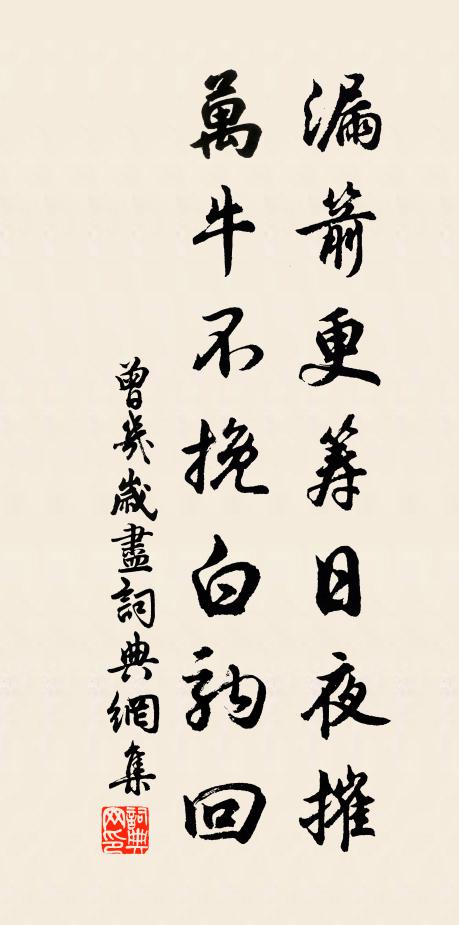 漏箭更筹日夜摧
萬牛不挽白駒回
曾幾歲盡詞典網集
詞典网印